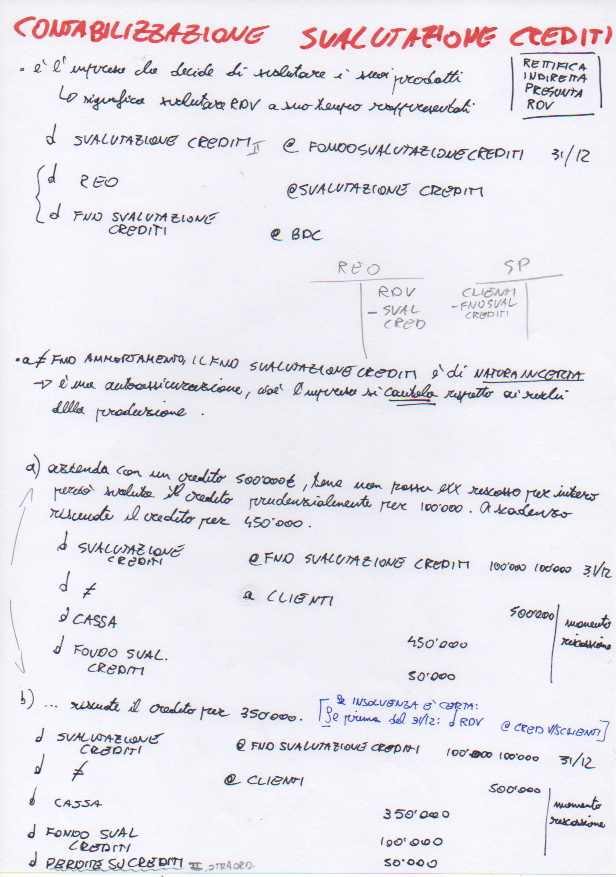 CONTABILIZZAZIONE SVALUTAZIONE CREDITI
RETTIFICA
INDIRETTA
PRESUNTA
RDV
• è l'impresa che decide di svalutare i suoi prodotti
↳ significa svalutare RDV a suo tempo rappresentati
d SVALUTAZIONE CREDITI II @ FONDO SVALUTAZIONE CREDITI 31/12
d REO @ SVALUTAZIONE CREDITI
d FND SVALUTAZIONE
CREDITI @ BDC
REO
RDV
- SVAL
CRED
SP
CLIENTI
- FND SVAL
CREDITI
• a ≠ FND AMMORTAMENTO, IL FND SVALUTAZIONE CREDITI è di NATURA INCERTA
→ è una autoassicurazione, cioè l'impresa si cautela rispetto ai rischi
della produzione.
a) azienda con un credito 500'000€, teme non possa exx riscosso per intero
perciò svaluta il credito prudenzialmente per 100'000. A scadenza
riscuote il credito per 450'000.
d SVALUTAZIONE
CREDITI @ FND SVALUTAZIONE CREDITI 100'000 100'000 31/12
d ≠ a CLIENTI 500'000
momento
riscossione
d CASSA 450'000
d FONDO SVAL.
CREDITI 50'000
b) ... riscuote il credito per 350'000.
Se INSOLVENZA E' CERTA:
Se prima del 31/12: d RDV @ CRED V/SCLIENTI
d SVALUTAZIONE
CREDITI @ FND SVALUTAZIONE CREDITI 100'000 100'000 31/12
d ≠ @ CLIENTI 500'000
momento
riscossione
d CASSA 350'000
d FONDO SVAL
CREDITI 100'000
d PERDITE SU CREDITI III, STRAORD. 50'000